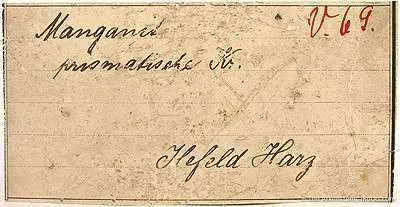 Manganit
V. 69.
prismatische Kr.
Ilefeld Harz